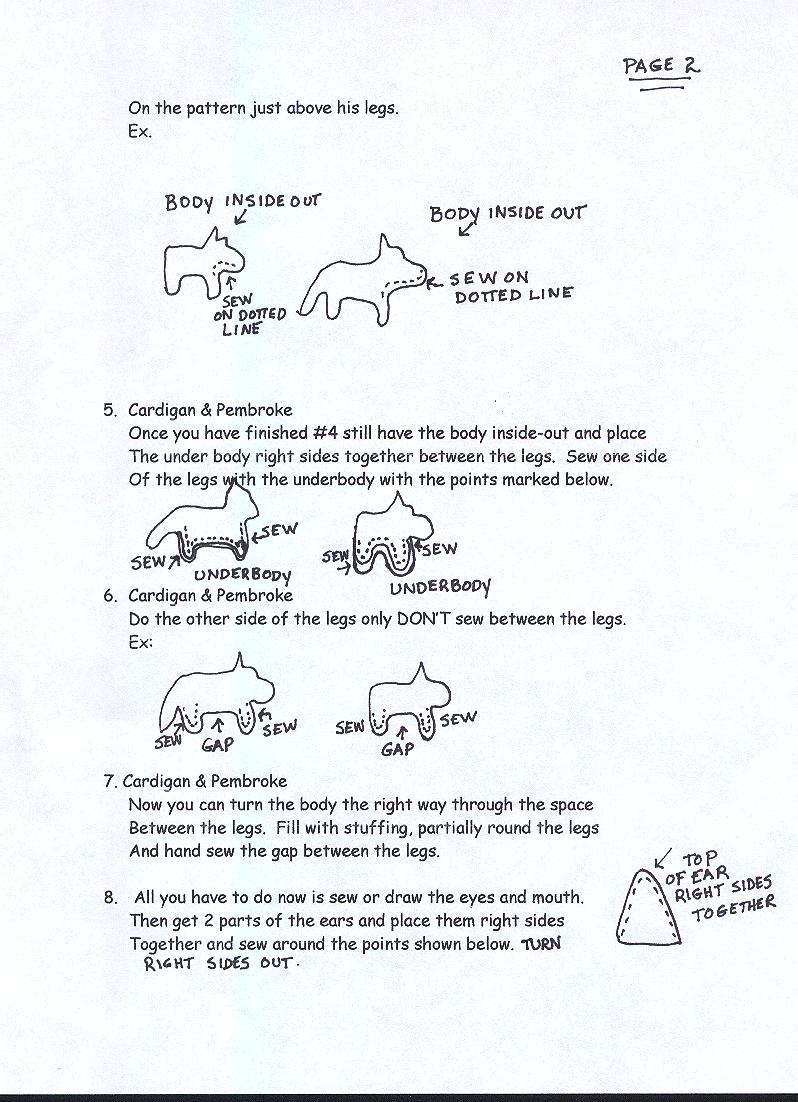 PAGE 2
On the pattern just above his legs.
Ex.
BODY INSIDE OUT
BODY INSIDE OUT
SEW
ON DOTTED
LINE
SEW ON
DOTTED LINE
5. Cardigan & Pembroke
Once you have finished #4 still have the body inside-out and place
The under body right sides together between the legs. Sew one side
Of the legs with the underbody with the points marked below.
SEW
SEW
UNDERBODY
SEW
SEW
UNDERBODY
6. Cardigan & Pembroke
Do the other side of the legs only DON'T sew between the legs.
Ex:
SEW
GAP
SEW
SEW
GAP
SEW
7. Cardigan & Pembroke
Now you can turn the body the right way through the space
Between the legs. Fill with stuffing, partially round the legs
And hand sew the gap between the legs.
8. All you have to do now is sew or draw the eyes and mouth.
Then get 2 parts of the ears and place them right sides
Together and sew around the points shown below. TURN
RIGHT SIDES OUT.
TOP
OF EAR
RIGHT SIDES
TOGETHER